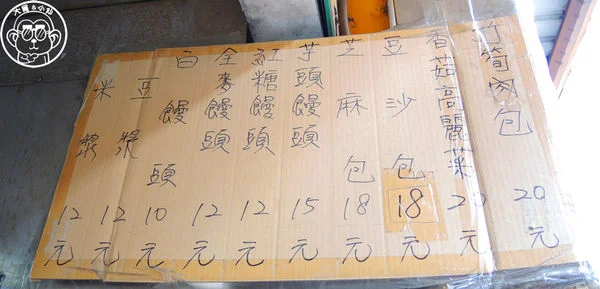 竹筍肉包 20元
香菇高麗菜 20元
豆沙包 18元
芝麻包 18元
芋頭饅頭 15元
紅糖饅頭 12元
全麥饅頭 12元
白饅頭 10元
豆漿 12元
米漿 12元
大圓&小仙